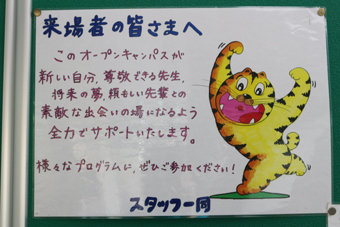 来場者の皆さまへ
このオープンキャンパスが
新しい自分、尊敬できる先生、
将来の夢、頼もしい先輩との
素敵な出会いの場になるよう
全力でサポートいたします。
様々なプログラムに、ぜひご参加ください!
スタッフ一同